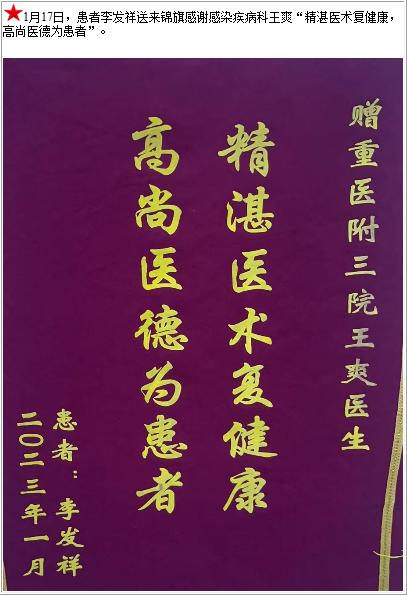 ★1月17日，患者李发祥送来锦旗感谢感染疾病科王爽“精湛医术复健康，
高尚医德为患者”。
赠重医附三院王爽医生
精湛医术复健康
高尚医德为患者
患者：李发祥
二〇二三年一月